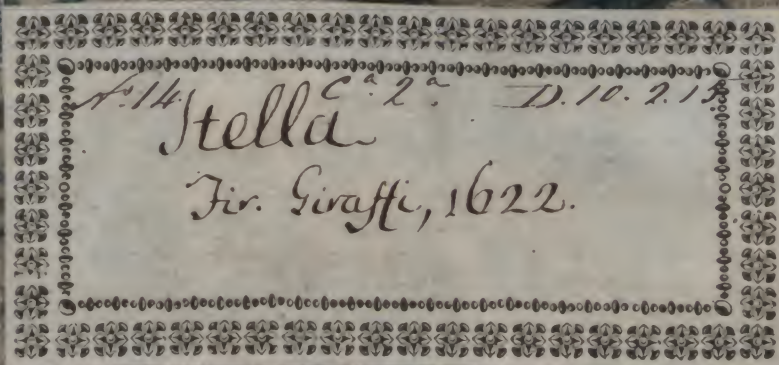 No. 14. Ca. 2a. D. 10. 2. 15.
Stella
Fir. Giraffi, 1622.